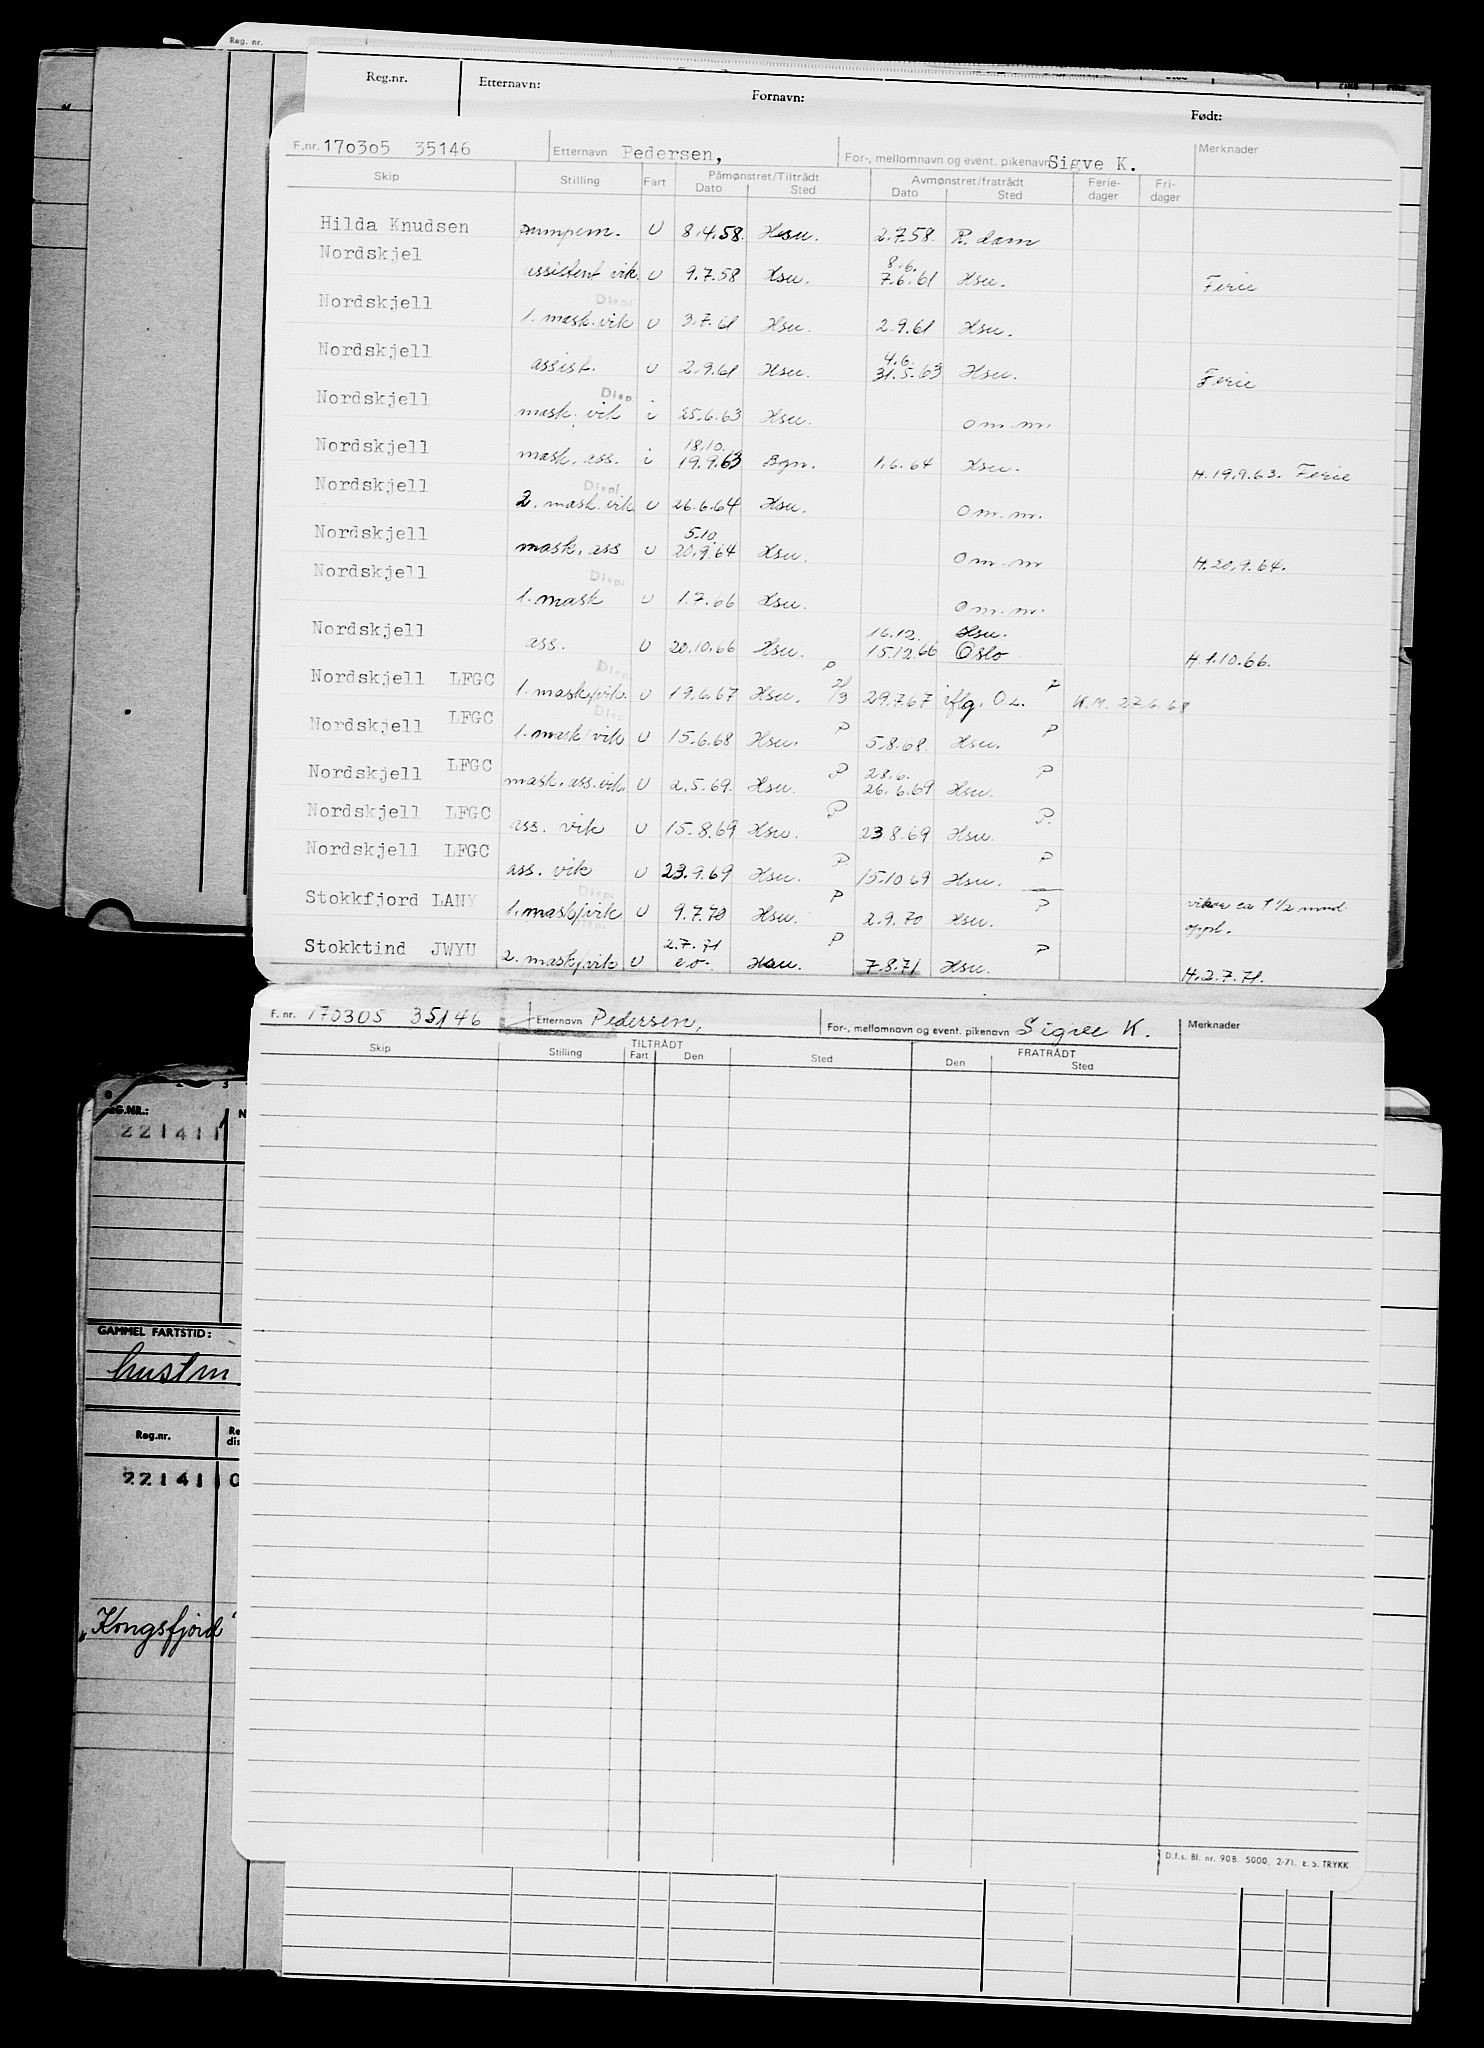 Reg. nr.
Reg.nr. Etternavn: Fornavn: Født:
F.nr. 170305 35146 Etternavn Pedersen, For-, mellomnavn og event. pikenavn Sigve K. Merknader
Skip Stilling Fart Påmønstret/Tiltrådt Dato Sted Avmønstret/fratrådt Dato Sted Ferie-dager Fri-dager
Hilda Knudsen pumpem. U 8.4.58. Hsu. 2.7.58. R.dam
Nordskjel assistent vik. U 9.7.58 Hsu. 8.6. 7.6.61 Hsu. Ferie
Nordskjell Displ 1. mask. vik U 3.7.61 Hsu. 2.9.61 Hsu.
Nordskjell assist. U 2.9.61 Hsu. 4.6. 31.5.63 Hsu. Ferie
Nordskjell Disp. mask. vik i 25.6.63 Hsu. om.m.
Nordskjell mask. ass. i 18.10. 19.9.63 Bgn. 1.6.64 Hsu. H.19.9.63. Ferie
Nordskjell Displ 2. mask. vik U 26.6.64 Hsu. om.m.
Nordskjell mask. ass U 5.10. 20.9.64 Hsu. om.m H.20.9.64.
Nordskjell Displ 1. mask U 1.7.66 Hsu. om.m.
Nordskjell ass. U 20.10.66 Hsu. 16.12. Hsu. 15.12.66 Oslo H.1.10.66.
Nordskjell LFGC Disp 1. mask/vik. U 19.6.67 Hsu. P 29.7.67 iflg. O.L. P K.M. 27.6.68
Nordskjell LFGC Disp. 1. mask/vik U 15.6.68 Hsu. P 5.8.68. Hsu. P
Nordskjell LFGC mask. ass. vik. U 2.5.69. Hsu. P 28.6. 26.6.69 Hsu. P
Nordskjell LFGC ass. vik U 15.8.69 Hsu. P 23.8.69 Hsu. P.
Nordskjell LFGC ass. vik U 23.9.69 Hsu. P. 15.10.69 Hsu. P
Stokkfjord LANY Displ. 1. mask/vik U 9.7.70 Hsu. P 2.9.70 Hsu. P vikar ca 1 1/2 mnd oppl.
Stokktind JWYU 2. mask/vik U 2.7.71 e.o. Hsu. P 7.8.71 Hsu. P H.2.7.71.
F. nr. 170305 35146 Etternavn Pedersen, For-, mellomnavn og event. pikenavn Sigve K. Merknader
TILTRÅDT FRATRÅDT
Skip Stilling Fart Den Sted Den Sted
REG.NR.: N
221411
GAMMEL FARTSTID:
hustm
Reg.nr. Re dis
221411 0
"Kongsfjord"
D.f.s. Bl. nr. 90B. 5000. 2-71. E. S. TRYKK